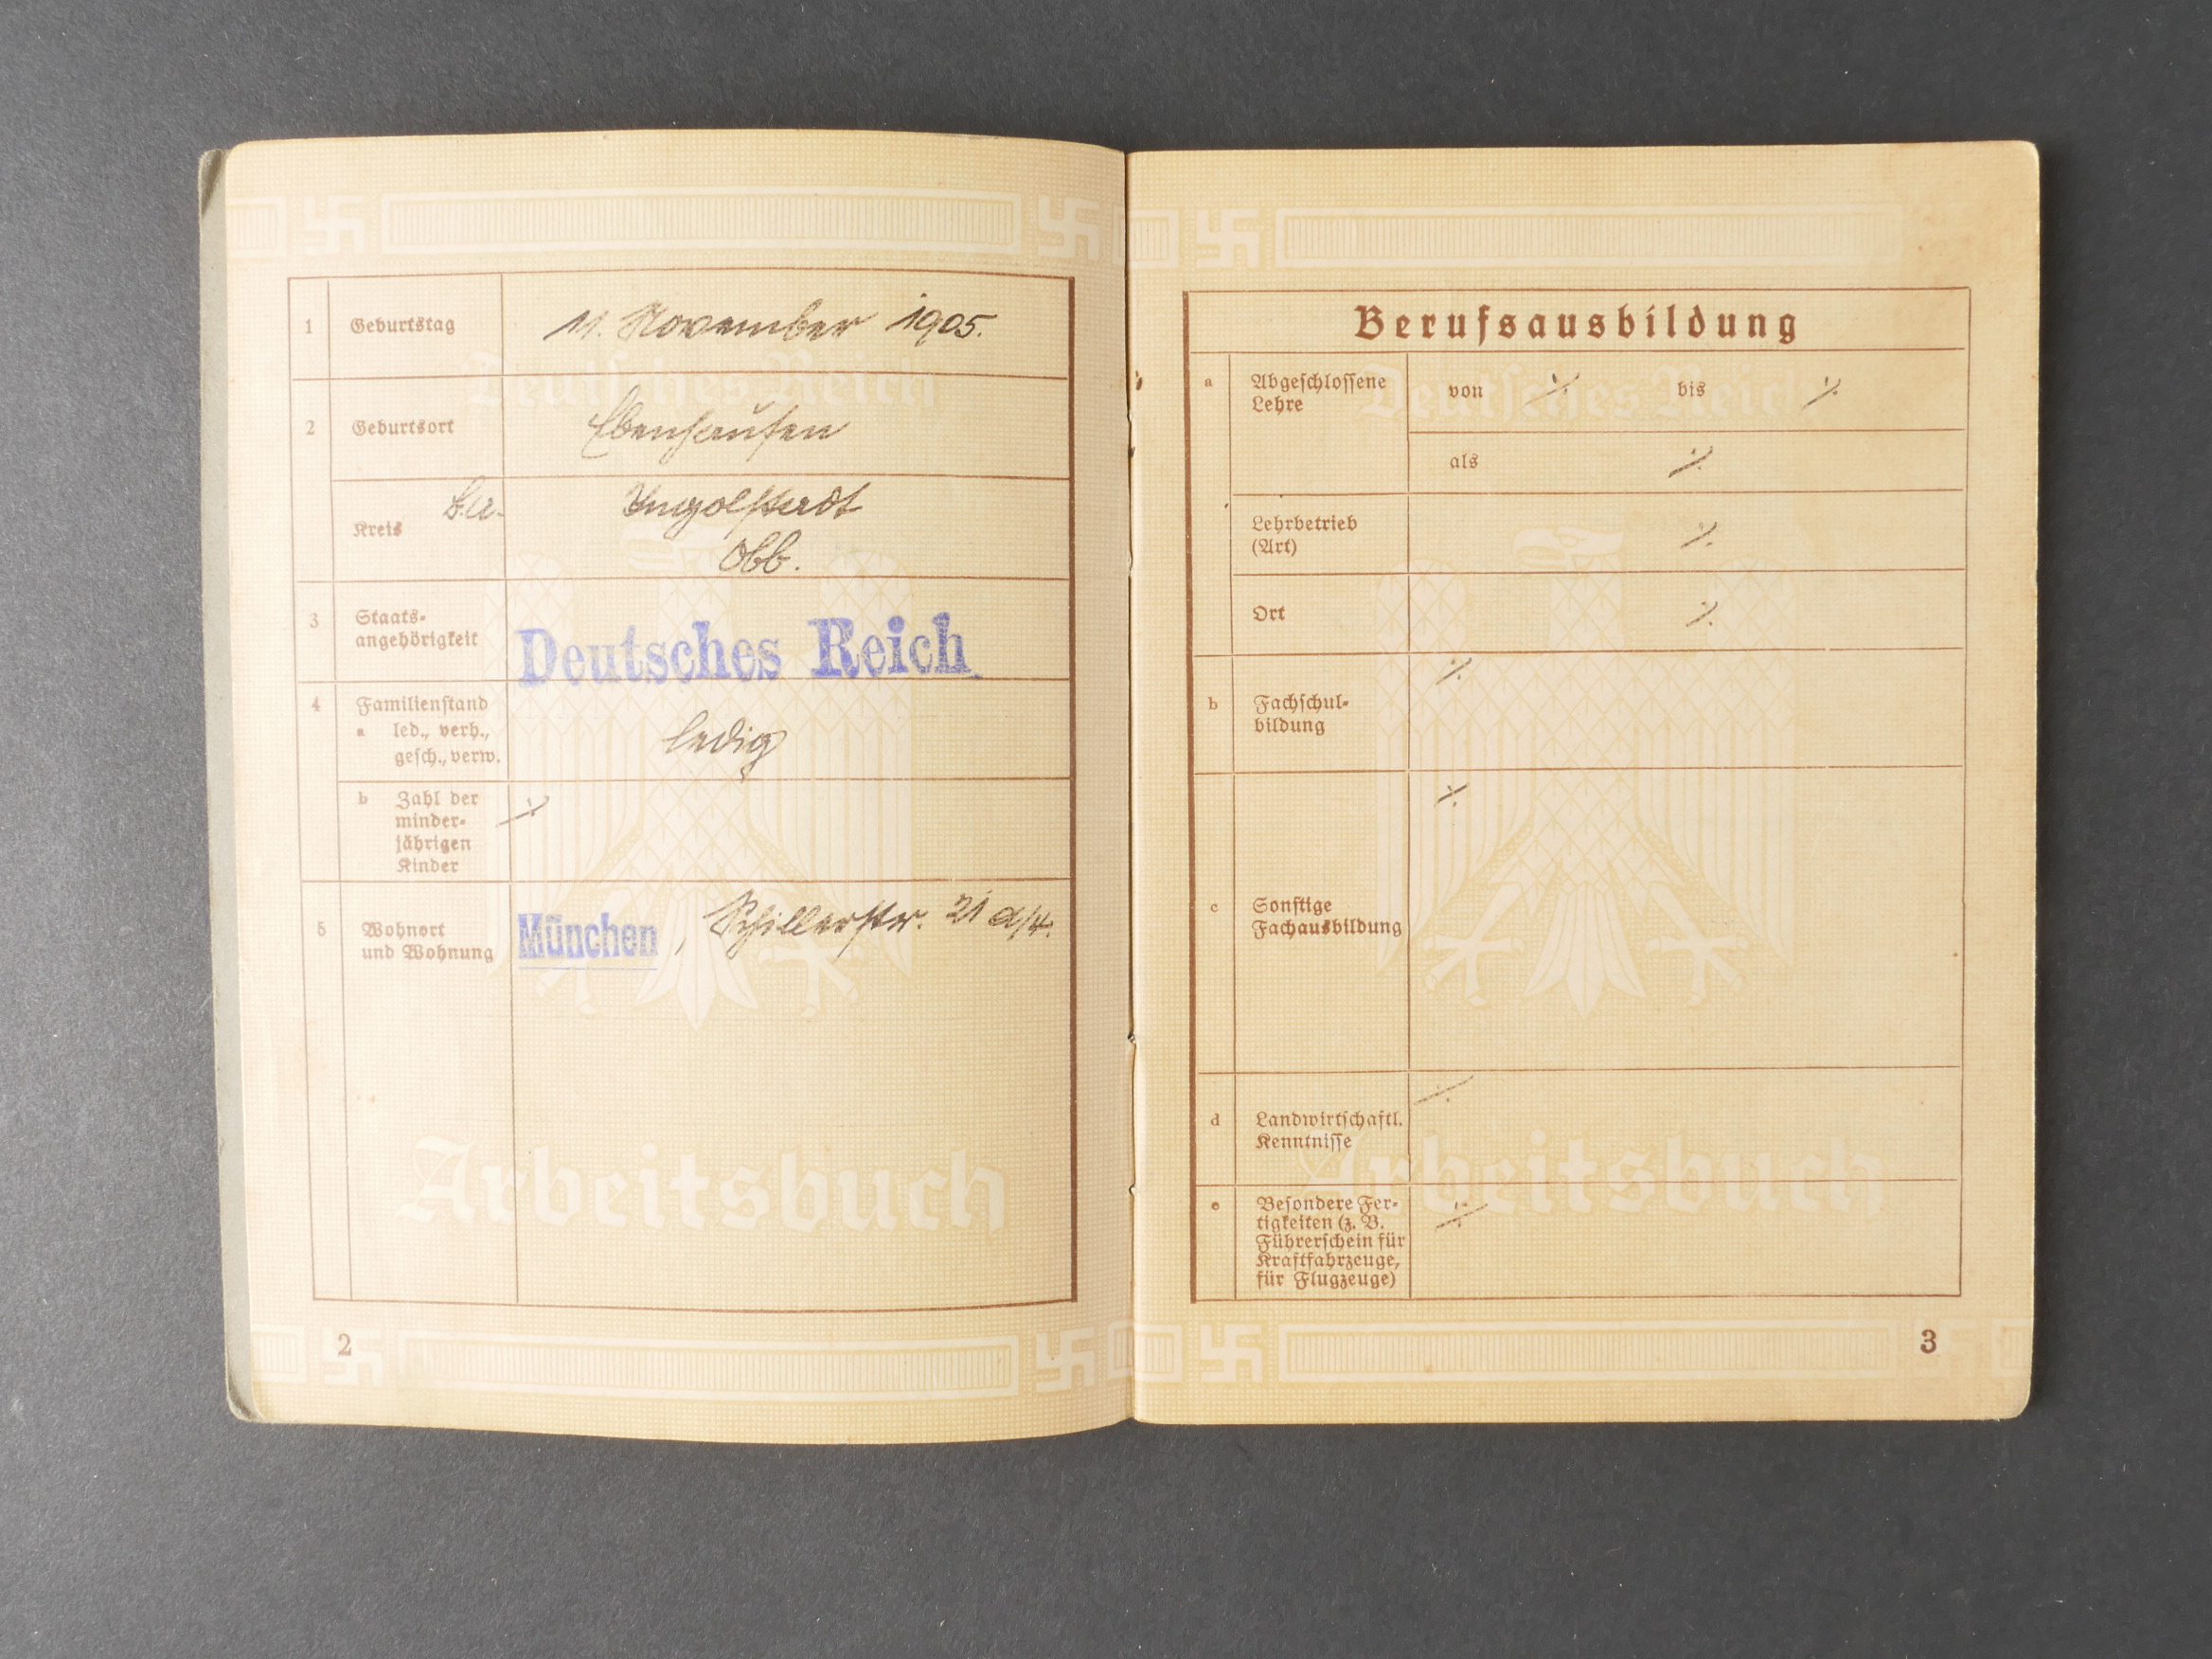 1 Geburtstag 11. November 1905.
2 Geburtsort Ebenhausen
Kreis B.A. Ingolstadt
Obb.
3 Staats-
angehörigkeit Deutsches Reich
4 Familienstand
a led., verh.,
gesch., verw. ledig
b Zahl der
minder-
jährigen
Kinder ./.
5 Wohnort
und Wohnung München, Schillerstr. 21 a/4.
Deutsches Reich
Arbeitsbuch
2
Berufsausbildung
a Abgeschlossene
Lehre von ./. bis ./.
als ./.
Lehrbetrieb
(Art) ./.
Ort ./.
b Fachschul-
bildung ./.
c Sonstige
Fachausbildung ./.
d Landwirtschaftl.
Kenntnisse ./.
e Besondere Fer-
tigkeiten (z. B.
Führerschein für
Kraftfahrzeuge,
für Flugzeuge) ./.
Deutsches Reich
Arbeitsbuch
3